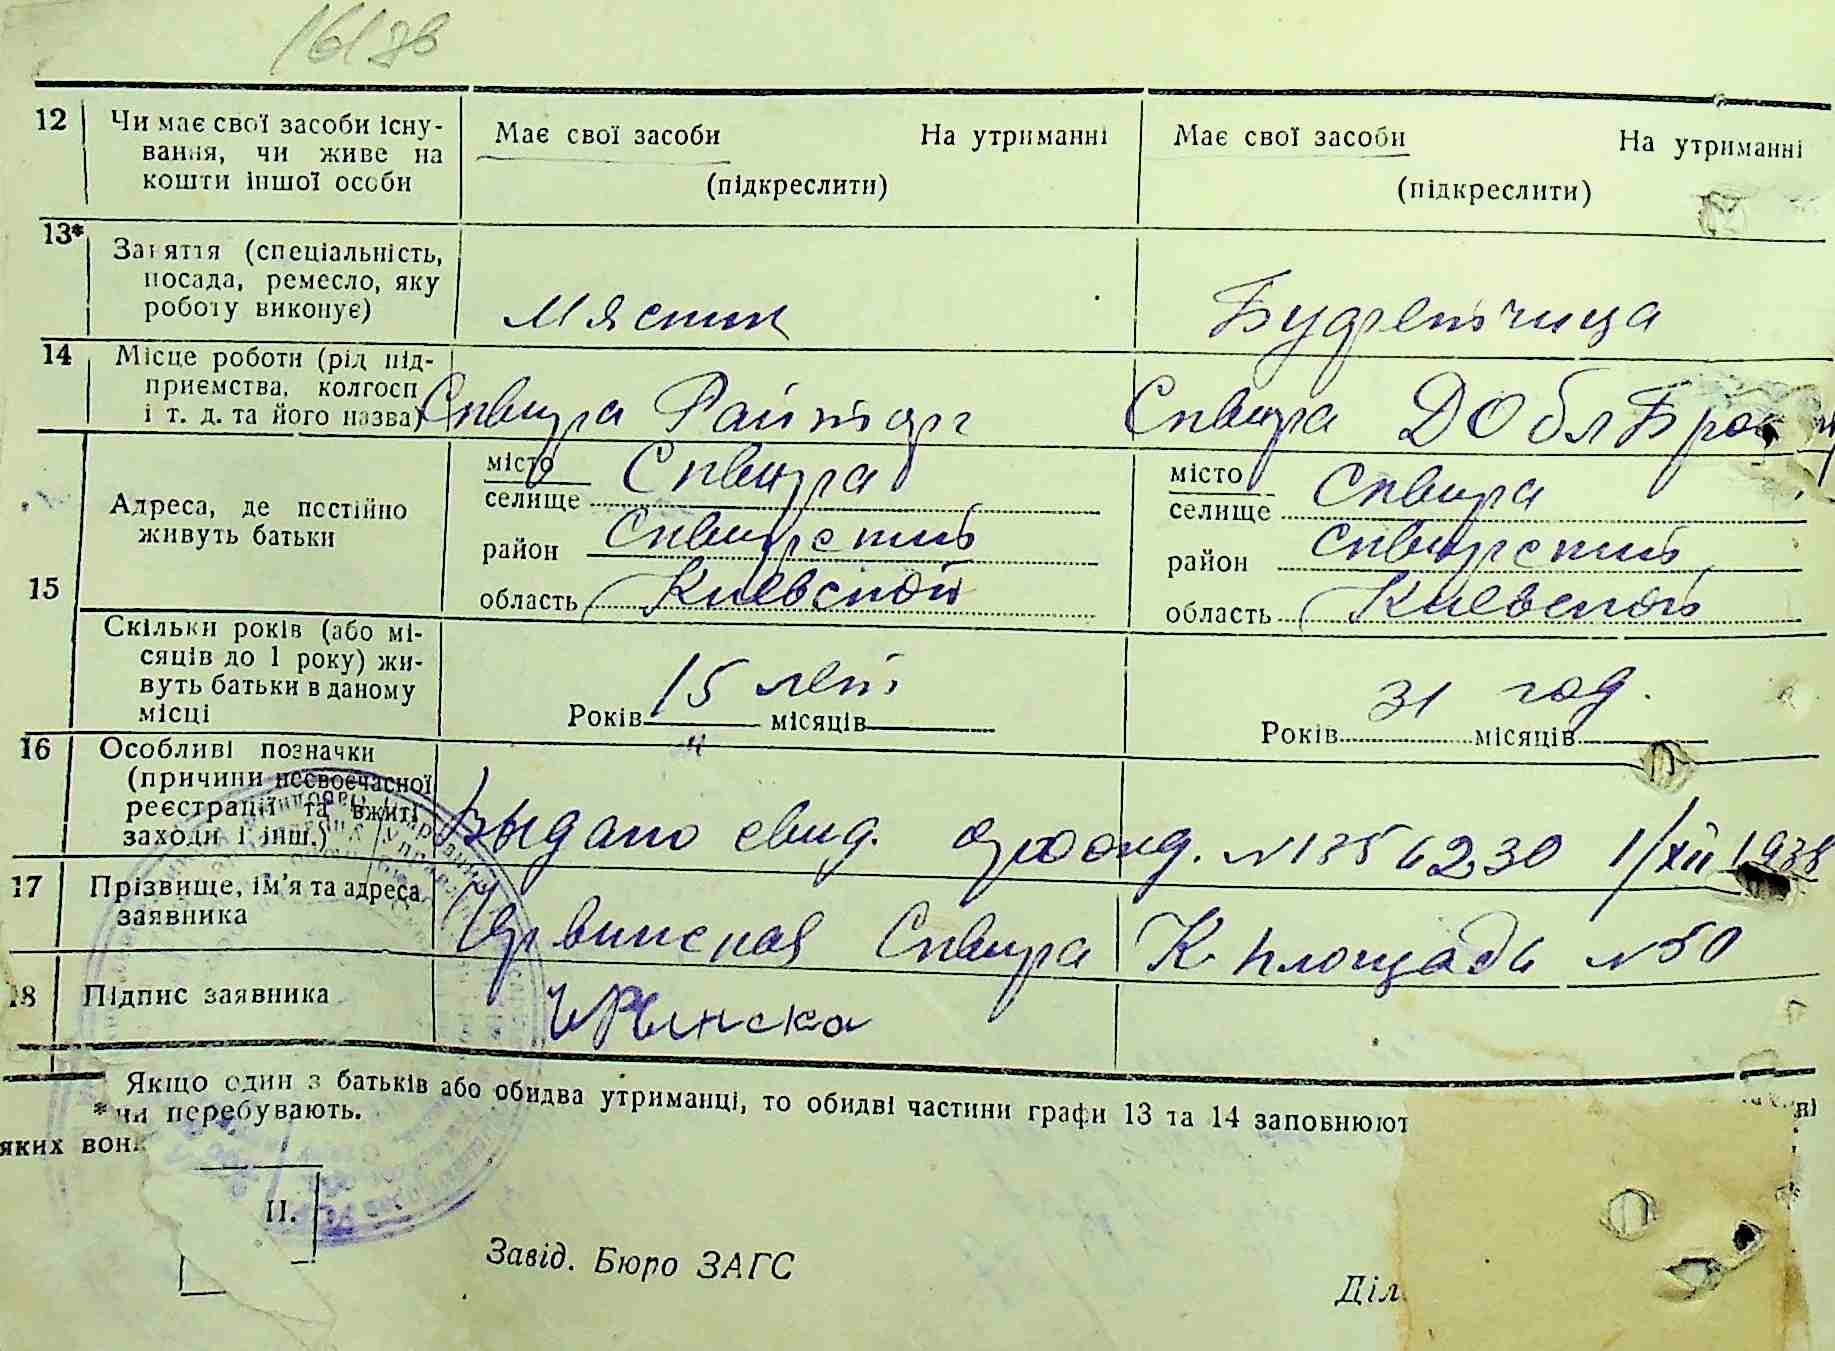 12 Чи має свої засоби існу-
вання, чи живе на
кошти іншої особи
Має свої засоби На утриманні
(підкреслити)
Має свої засоби На утриманні
(підкреслити)
13* Заняття (спеціальність,
посада, ремесло, яку
роботу виконує)
Мясник
Буфетчица
14 Місце роботи (рід під-
приємства, колгосп
і т. д. та його назва)
Сквира Райторг
Сквира
15 Адреса, де постійно
живуть батьки
місто Сквира
селище
район Сквирский
область Киевской
місто Сквира
селище
район Сквирский
область Киевской
Скільки років (або мі-
сяців до 1 року) жи-
вуть батьки в даному
місці
15 лет
Років місяців
31 год.
Років місяців
16 Особливі позначки
(причини несвоєчасної
реєстрації та вжиті
заходи і інш.)
Выдано свид. о рожд. № 1354230 1/XII 1938
17 Прізвище, ім'я та адреса
заявника
Сквира К. площадь № 50
18 Підпис заявника
Якщо один з батьків або обидва утриманці, то обидві частини графи 13 та 14 заповнюют
* ни перебувають.
яких вон
П.
Завід. Бюро ЗАГС
Діл